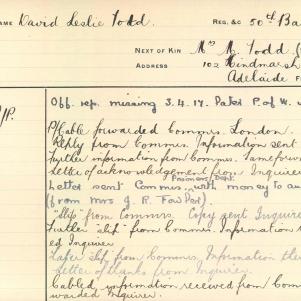 NAME David Leslie Todd. REG. & C 50th Ba
NEXT OF KIN Mrs M. Todd
ADDRESS 102 Hindmarsh
Adelaide
Off. rep. missing 3.4.17. Later P. of W.
P/Cable forwarded Commrs. London.
Reply from Commrs. Information sent
Further information from Commrs. Same forw
Letter of acknowledgement from Inquirer
Prisoners Dept.
Letter sent Commrs. with money to
(from Mrs J. R. Fowler).
"Slip" from Commrs. Copy sent Inquirer
Further "slip" from Commrs. Information
ed Inquirer
Later slip from Commrs, Information
letter of thanks from Inquirer.
Cabled information received from Com
warded Inquirer.